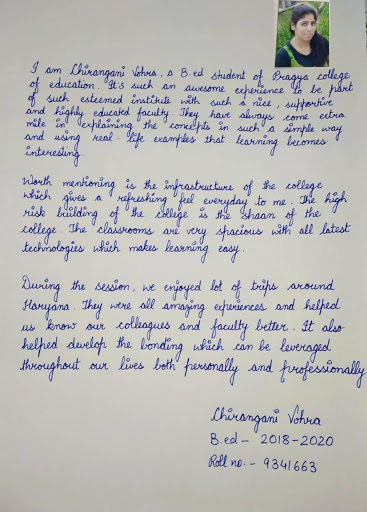 I am Chirangani Vohra, a B.ed student of Pragya college
of education. It's such an awesome experience to be part
of such esteemed institute with such a nice, supportive
and highly educated faculty. They have always come extra
mile in explaining the concepts in such a simple way
and using real-life examples that learning becomes
interesting
Worth mentioning is the infrastructure of the college
which gives a refreshing feel everyday to me. The high
risk building of the college is the shaan of the
college. The classrooms are very spacious with all latest
technologies which makes learning easy.
During the session, we enjoyed lot of trips around
Haryana. They were all amazing experiences and helped
us know our colleagues and faculty better. It also
helped develop the bonding which can be leveraged
throughout our lives both personally and professionally
Chirangani Vohra
B.ed - 2018-2020
Roll no. - 9341663